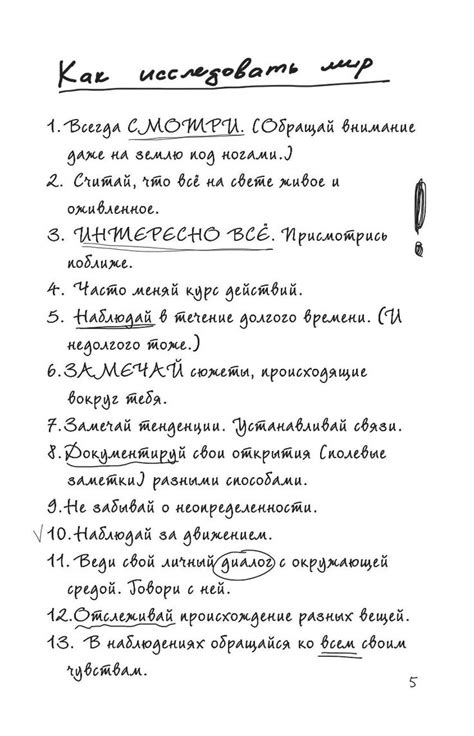 Как исследовать мир
1. Всегда СМОТРИ. (Обращай внимание
даже на землю под ногами.)
2. Считай, что всё на свете живое и
оживленное.
!
3. ИНТЕРЕСНО ВСЁ. Присмотрись
поближе.
4. Часто меняй курс действий.
5. Наблюдай в течение долгого времени. (И
недолгого тоже.)
6. ЗАМЕЧАЙ сюжеты, происходящие
вокруг тебя.
7. Замечай тенденции. Устанавливай связи.
8. Документируй свои открытия (полевые
заметки) разными способами.
9. Не забывай о неопределенности.
√ 10. Наблюдай за движением.
11. Веди свой личный диалог с окружающей
средой. Говори с ней.
12. Отслеживай происхождение разных вещей.
13. В наблюдениях обращайся ко всем своим
чувствам.
5